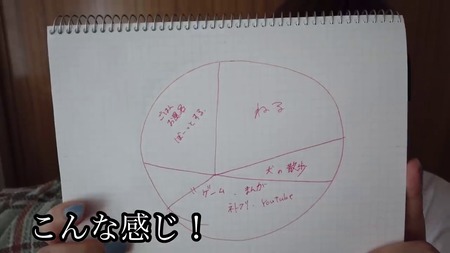 ごはん
お風呂
ぼーっとする
ねる
犬の散歩
ゲーム、まんが
ネトフリ、Youtube
こんな感じ！